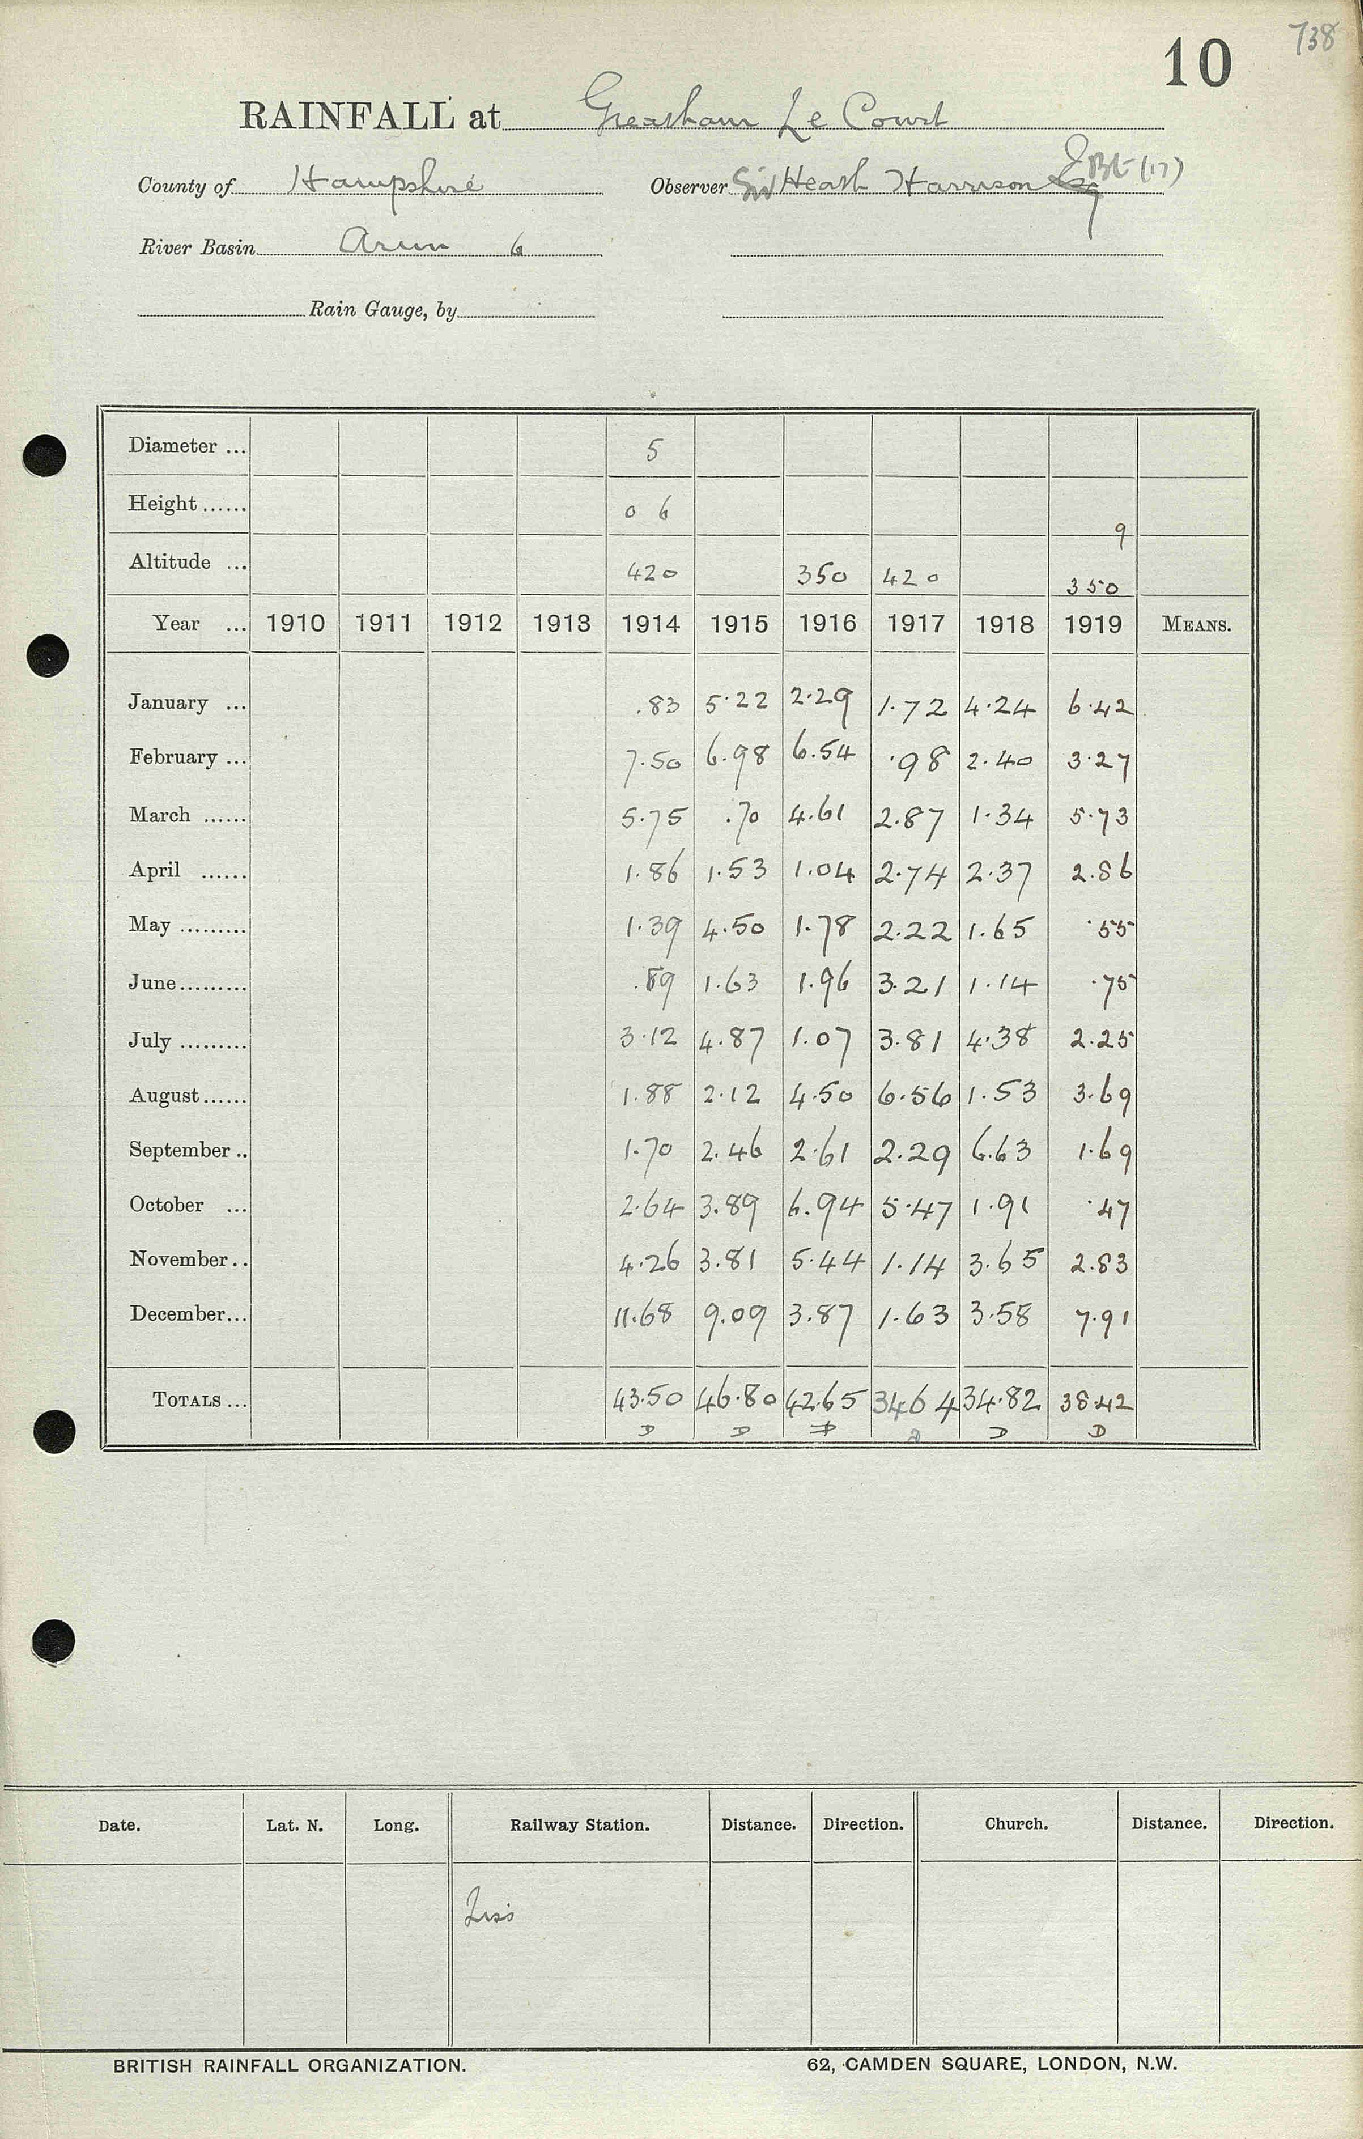 738
10
RAINFALL at Greatham Le Court
County of Hampshire Observer Sir Heath Harrison Esq Bt (17)
River Basin Arun 6
Rain Gauge, by
Diameter ... 5
Height ...... 0 6 9
Altitude ... 420 350 420 350
Year ... 1910 1911 1912 1913 1914 1915 1916 1917 1918 1919 MEANS.
January ... .83 5.22 2.29 1.72 4.24 6.42
February ... 7.50 6.98 6.54 .98 2.40 3.27
March ...... 5.75 .70 4.61 2.87 1.34 5.73
April ...... 1.86 1.53 1.04 2.74 2.37 2.86
May ......... 1.39 4.50 1.78 2.22 1.65 .55
June......... .89 1.63 1.96 3.21 1.14 .75
July ......... 3.12 4.87 1.07 3.81 4.38 2.25
August...... 1.88 2.12 4.50 6.56 1.53 3.69
September .. 1.70 2.46 2.61 2.29 6.63 1.69
October ... 2.64 3.89 6.94 5.47 1.91 .47
November.. 4.26 3.81 5.44 1.14 3.65 2.83
December... 11.68 9.09 3.87 1.63 3.58 7.91
TOTALS ... 43.50 46.80 42.65 34.64 34.82 38.42
D D D D D
Date. Lat. N. Long. Railway Station. Distance. Direction. Church. Distance. Direction.
Liss
BRITISH RAINFALL ORGANIZATION. 62, CAMDEN SQUARE, LONDON, N.W.